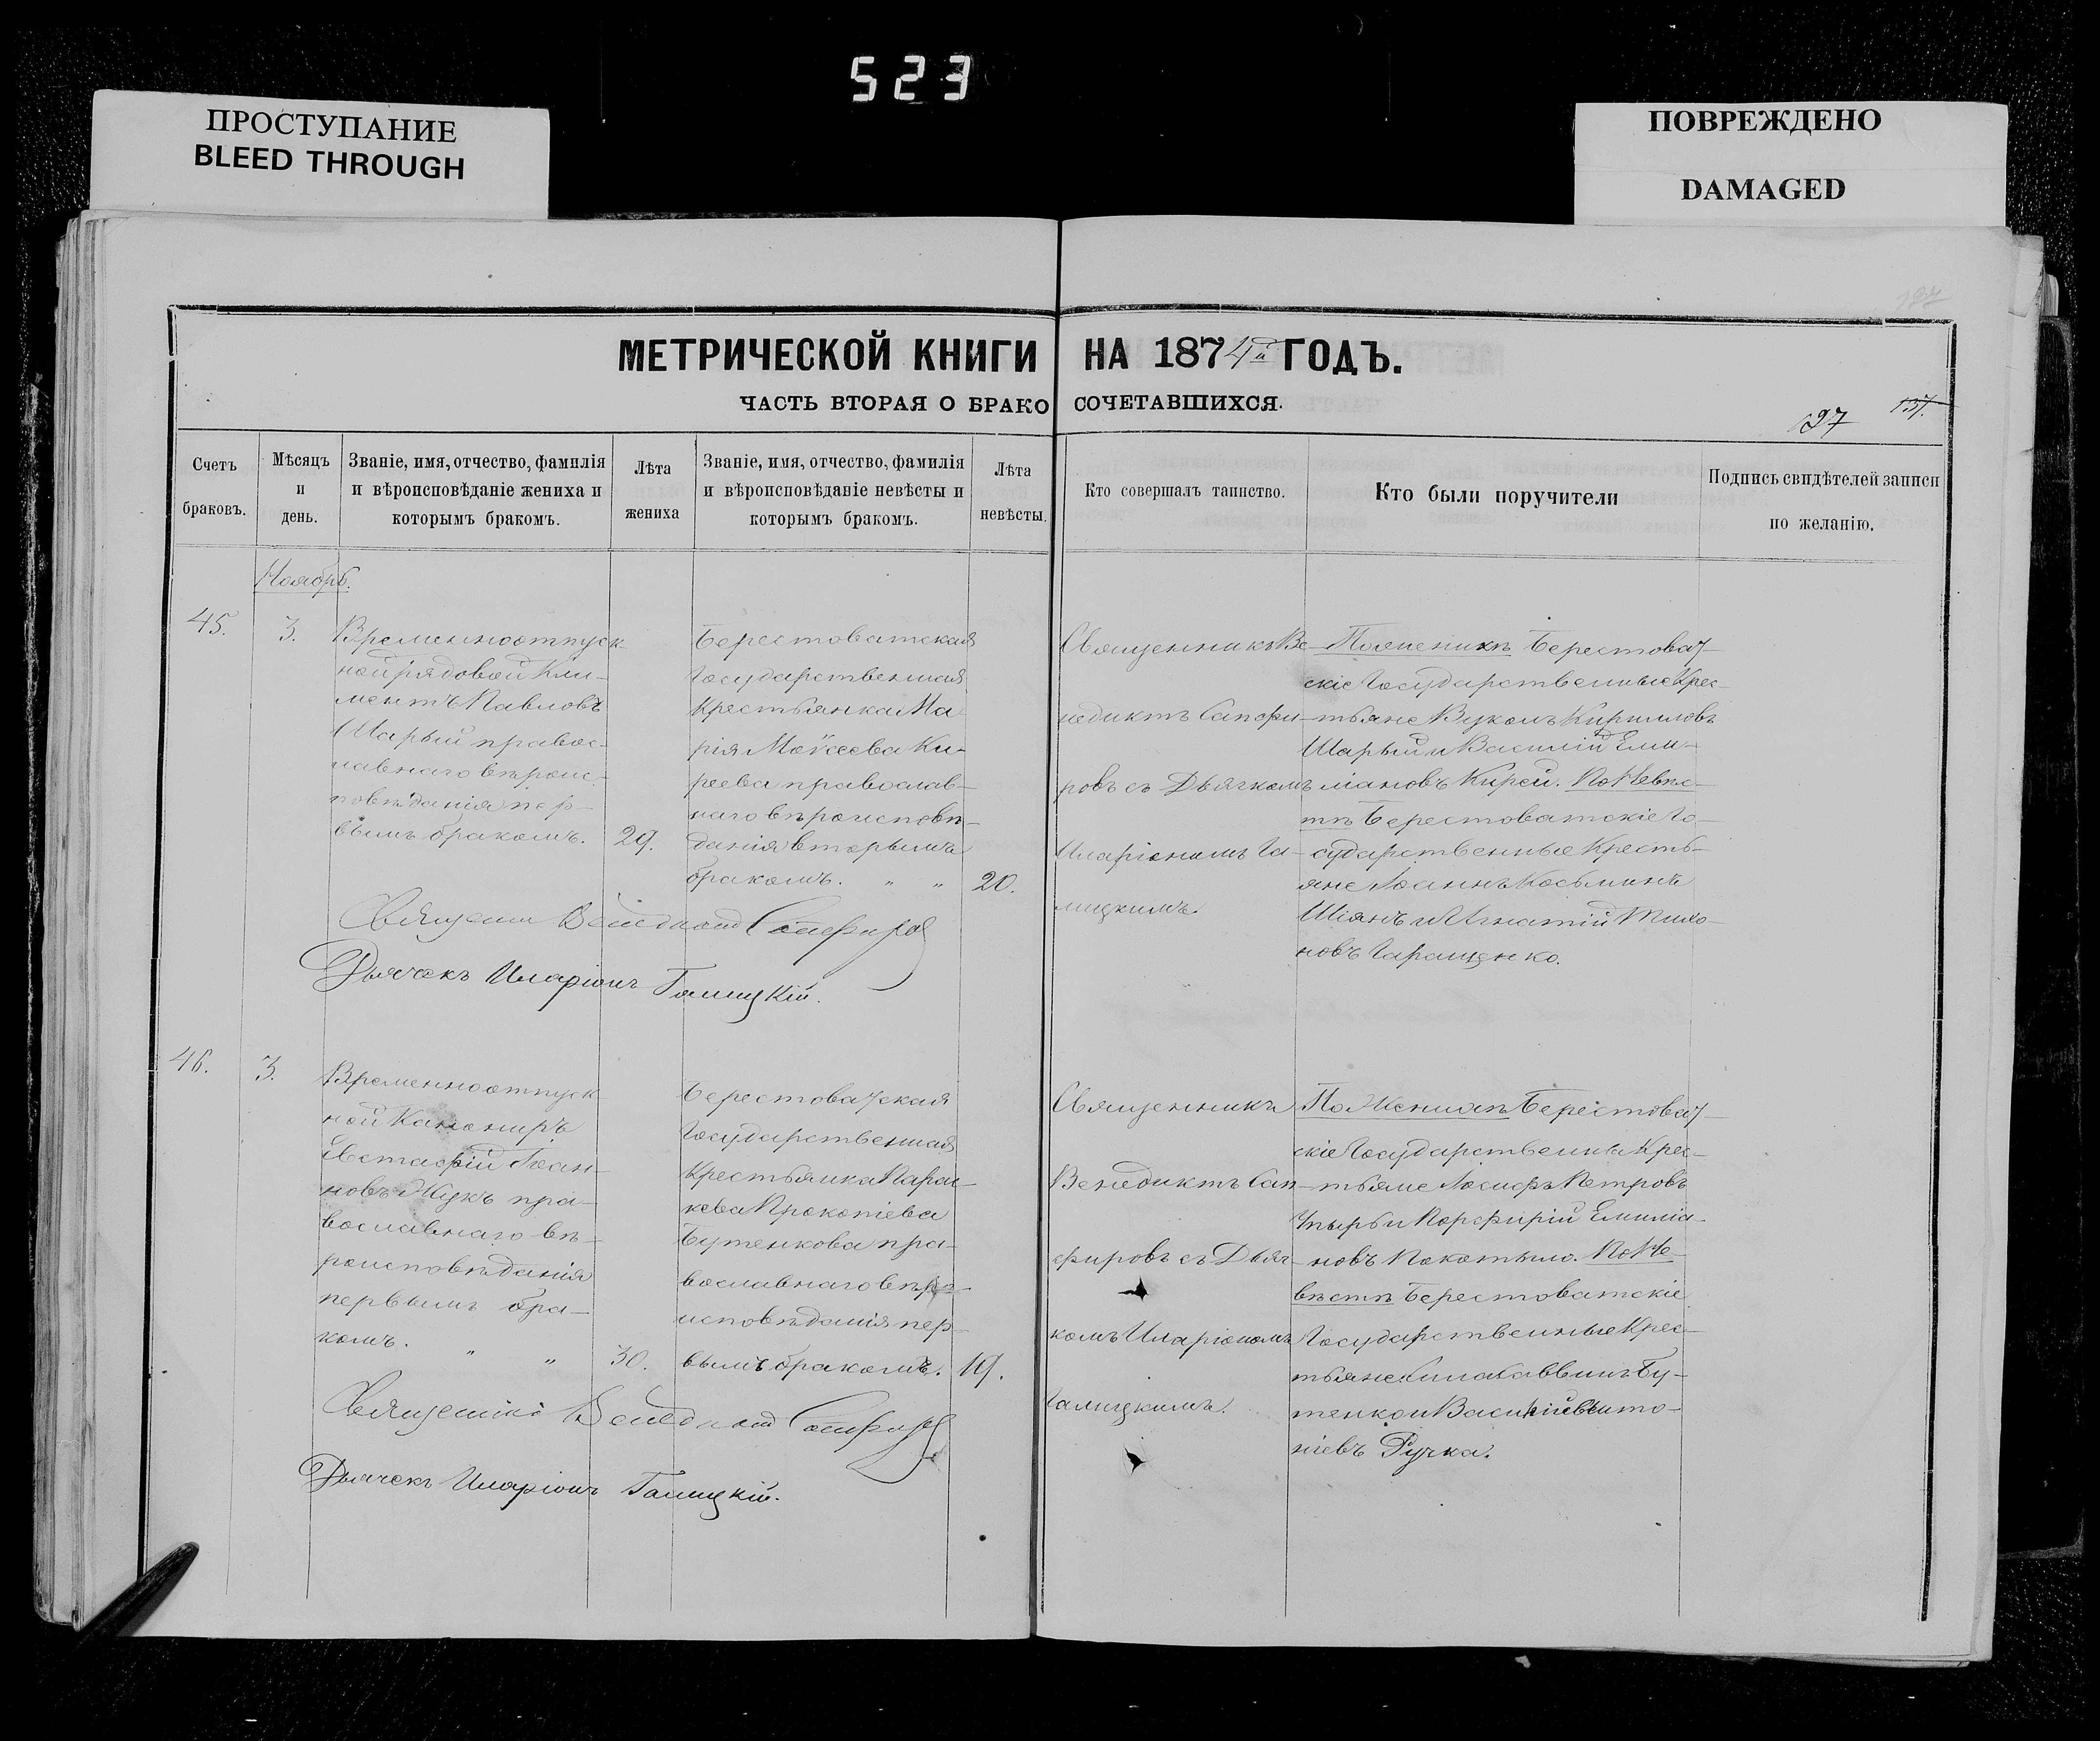 523
ПРОСТУПАНИЕ
BLEED THROUGH
ПОВРЕЖДЕНО
DAMAGED
МЕТРИЧЕСКОЙ КНИГИ НА 1874й ГОДЪ.
ЧАСТЬ ВТОРАЯ О БРАКОСОЧЕТАВШИХСЯ.
127
137.
Счетъ браковъ.
Мѣсяцъ и день.
Званіе, имя, отчество, фамилія
и вѣроисповѣданіе жениха и
которымъ бракомъ.
Лѣта жениха
Званіе, имя, отчество, фамилія
и вѣроисповѣданіе невѣсты и
которымъ бракомъ.
Лѣта невѣсты.
Кто совершалъ таинство.
Кто были поручители
Подпись свидѣтелей записи
по желанію.
Ноябрь.
45.
3.
Временноотпуск-
ной рядовой Кли-
ментъ Павловъ
Шарый правос-
лавнаго вѣроис-
повѣданія пер-
вымъ бракомъ.
29.
Берестоватская
Государственная
Крестьянка Ма
рія Моѵсеева Ки-
реева православ-
наго вѣроисповѣ-
данія вторымъ
бракомъ. " "
20.
Священникъ Ве-
недиктъ Сапфи-
ровъ съ Дьячкомъ
Иларіономъ Га-
лицкимъ.
По женихѣ Берестоват-
скіе Государственные Крес-
тьяне Вуколъ Кирилловъ
Шарый и Василій Еми-
ліановъ Кирей. По Невѣс-
тѣ Берестоватскіе Го-
сударственные Кресть-
яне Іоаннъ Косьминъ
Шіянъ и Игнатій Тихо-
новъ Гаращенко.
Священникъ Венедиктъ Сапфировъ
Дьячекъ Иларіонъ Галицкій.
46.
3.
Временноотпуск-
ной Канониръ
Евстафій Іоан-
новъ Жукъ пра-
вославнаго вѣ-
роисповѣданія
первымъ бра-
комъ. " "
30.
Берестоватская
Государственная
Крестьянка Парас-
кева Прокопіева
Бутенкова пра-
вославнаго вѣро-
исповѣданія пер-
вымъ бракомъ.
19.
Священникъ
Венедиктъ Сап-
фировъ съ Дьяч-
комъ Иларіономъ
Галицкимъ.
По Женихѣ Берестоват-
скіе Государственны Крес-
тьяне Іосифъ Петровъ
Упырь и Порфирій Емиліа-
новъ Покотыло. По Не-
вѣстѣ Берестоватскіе
Государственные Крес-
тьяне Сила Саввинъ Бу-
тенко и Василій
ніевъ Ручка.
Священникъ Венедиктъ Сапфировъ
Дьячекъ Иларіонъ Галицкій.